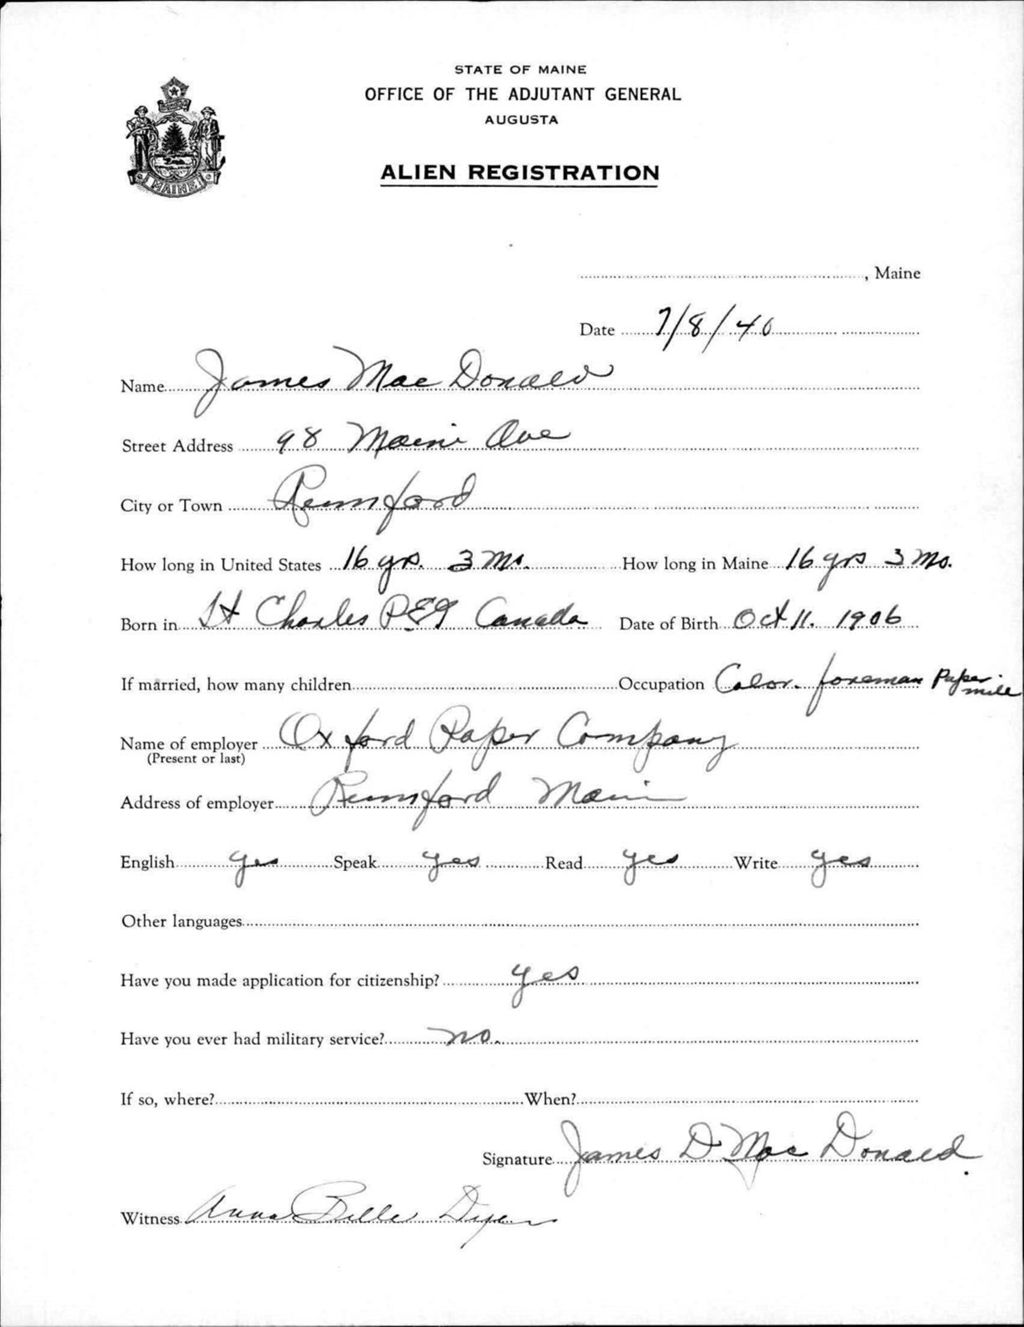 STATE OF MAINE
OFFICE OF THE ADJUTANT GENERAL
AUGUSTA
ALIEN REGISTRATION
MAINE
, Maine
Date 7/8/40
Name James Mac Donald
Street Address 98 Maine Ave
City or Town Rumford
How long in United States 16 yrs. 3 Mo. How long in Maine 16 yrs 3 Mo.
Born in St Charles P.E.I Canada Date of Birth Oct 11. 1906
If married, how many children Occupation Color foreman Paper mill
Name of employer Oxford Paper Company
(Present or last)
Address of employer Rumford Maine
English yes Speak yes Read yes Write yes
Other languages
Have you made application for citizenship? yes
Have you ever had military service? no.
If so, where? When?
Signature James D Mac Donald.
Witness Anna Belle Dyer